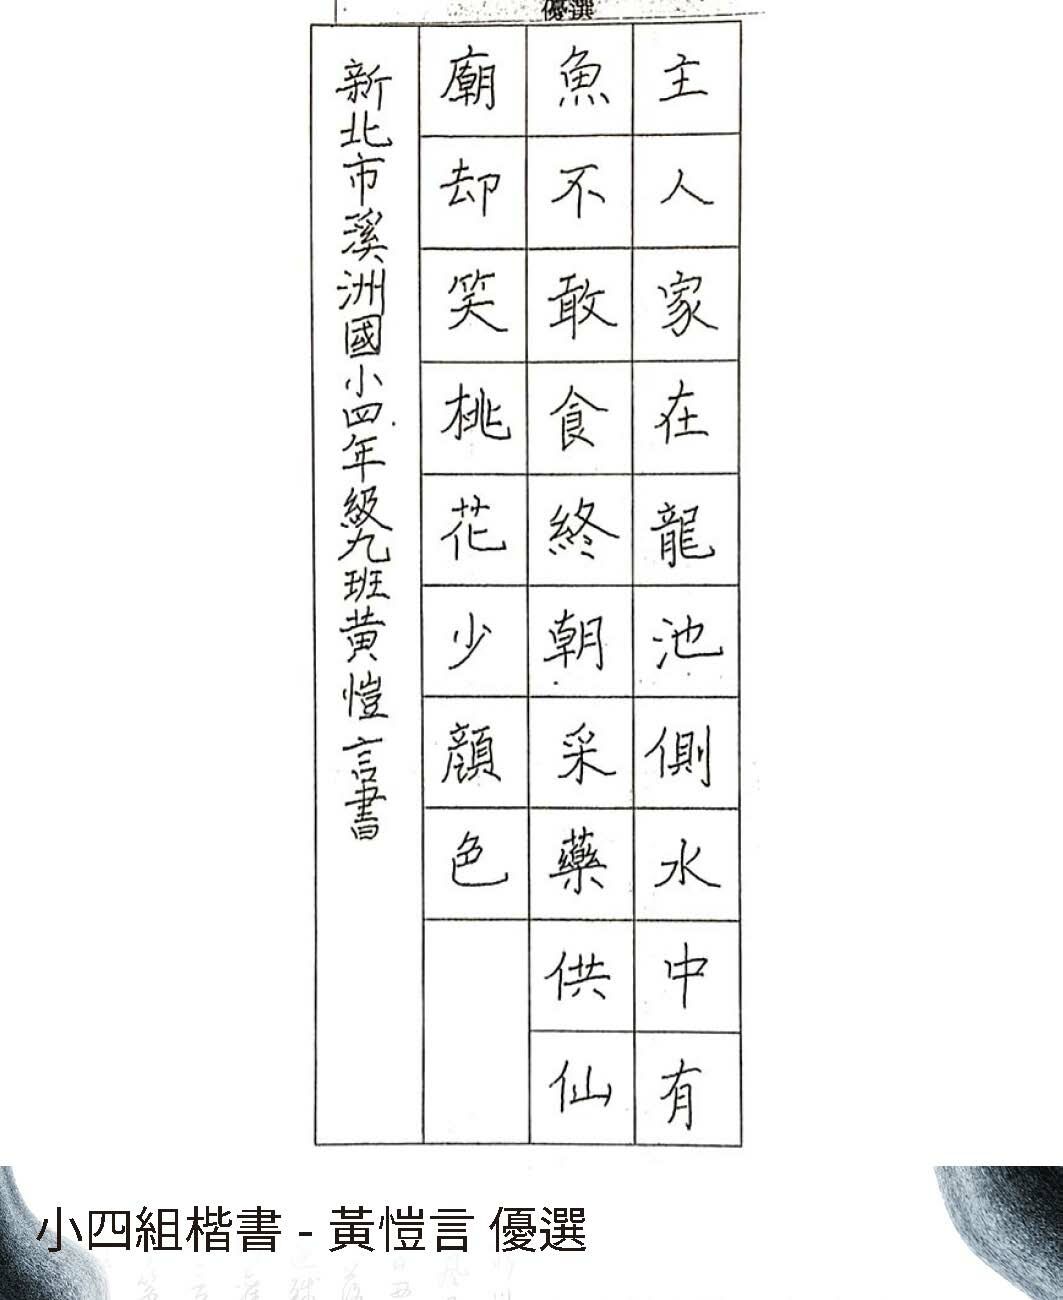 優選
主人家在龍池側水中有
魚不敢食終朝采藥供仙
廟却笑桃花少顏色
新北市溪洲國小四年級九班黃愷言書
小四組楷書 - 黃愷言 優選